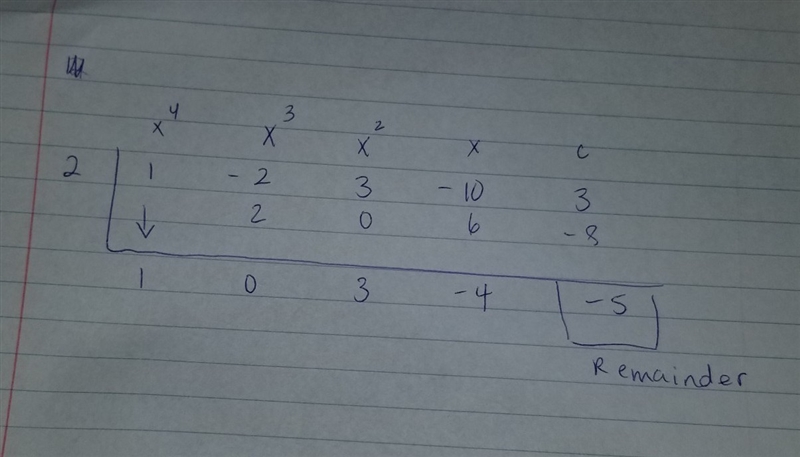 x⁴ x³ x² x c
2 1 -2 3 -10 3
↓ 2 0 6 -8
1 0 3 -4 -5
Remainder